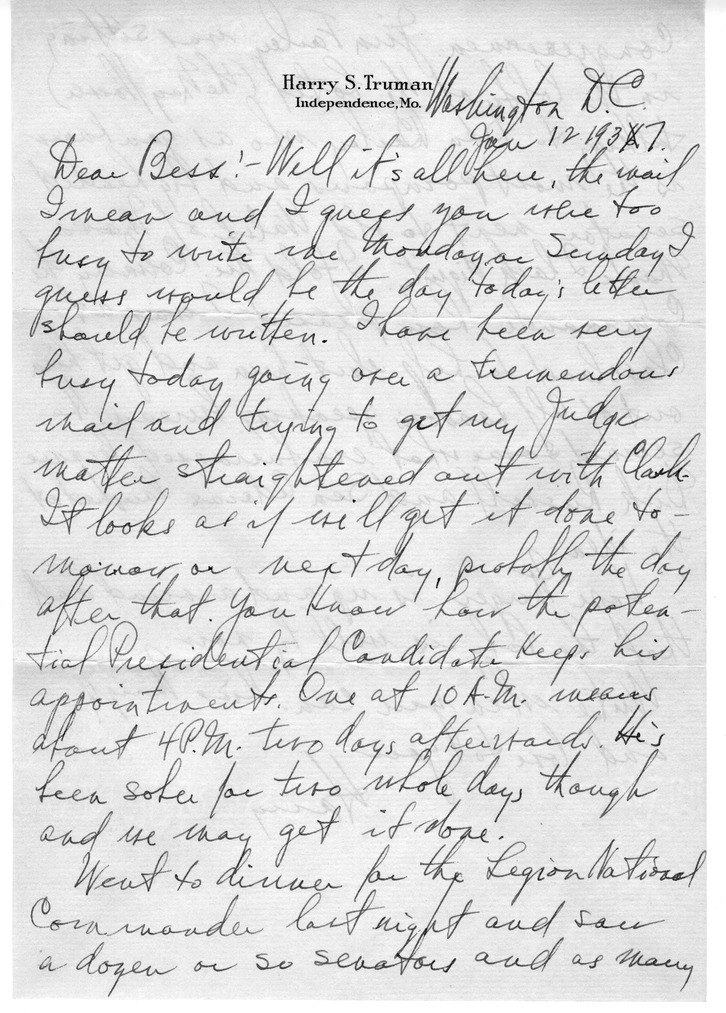 Harry S. Truman
Independence, Mo.
Washington D.C.
Jan 12 1937.
Dear Bess:- Well it's all here, the mail
I mean and I guess you were too
busy to write me Monday, or Sunday I
guess would be the day today's letter
should be written. I have been very
busy today going over a tremendous
mail and trying to get my Judge
matter straightened out with Clark.
It looks as if we'll get it done to-
morrow or next day, probably the day
after that. You know how the poten-
tial Presidential Candidate keeps his
appointments. One at 10 A.M. means
about 4 P.M. two days afterwards. He's
been sober for two whole days though
and we may get it done.
Went to dinner for the Legion National
Commander last night and saw
a dozen or so senators and as many